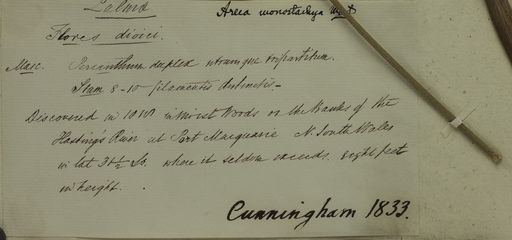 Palmæ
Areca monostachya
Flores dioici.
Masc. Perianthum duplex utrumque tripartitum.
Stam 8-10 filamentis distinctis_
Discovered in 1818 in moist woods on the Banks of the
Hastings River at Port Macquarie N. South Wales
in lat 31½ So. where it seldom exceeds eight feet
in height.
Cunningham 1833.